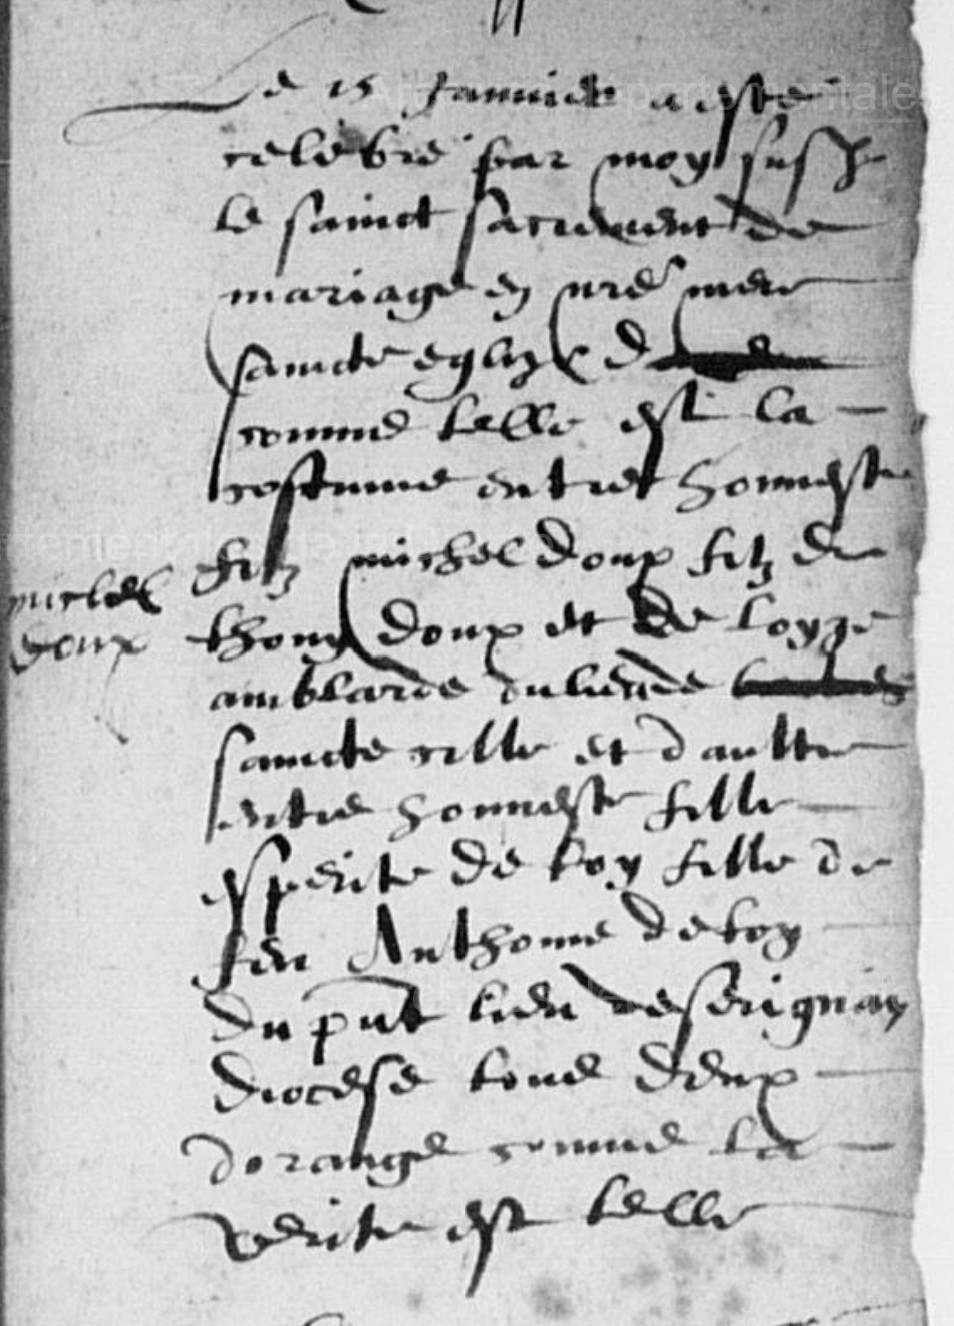 Le 15 Januier a esté
celebré par moy sus
le sainct sacrement de
mariage en nre mere
saincte eglize
comme telle est la
costume entre honneste
filz michel doux filz de
michel
doux
thony doux et de loyze
amblarde du lieu de
saincte cille et d aultre
entre honneste fille
esperite de toy fille de
feu Anthome de toy
du pnt lieu de serignan
diocese tous deux
dorange comme la
verite est telle